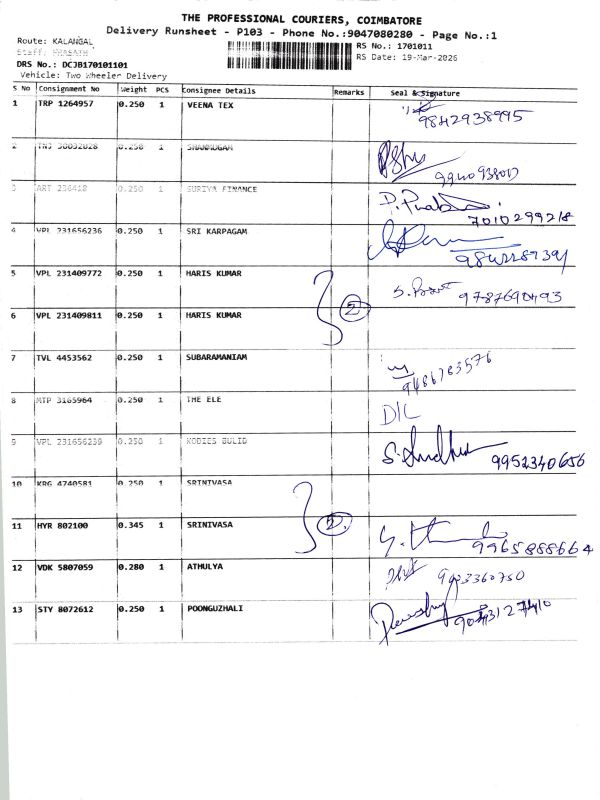 THE PROFESSIONAL COURIERS, COIMBATORE
Delivery Runsheet - P103 - Phone No.:9047080280 - Page No.:1
Route: KALANGAL
RS No.: 1701011
Staff: PRASATH
RS Date: 19-Mar-2026
DRS No.: DCJB170101101
Vehicle: Two Wheeler Delivery
S No Consignment No Weight PCS Consignee Details Remarks Seal & Signature
1 TRP 1264957 0.250 1 VEENA TEX 9842938995
2 TNJ 30032028 0.250 1 SHANMUGAM
3 ART 236418 0.250 1 SURIYA FINANCE 7010299218
4 VPL 231656236 0.250 1 SRI KARPAGAM
5 VPL 231409772 0.250 1 HARIS KUMAR 9787690493
2
6 VPL 231409811 0.250 1 HARIS KUMAR
7 TVL 4453562 0.250 1 SUBARAMANIAM 9486783576
8 MTP 3165964 0.250 1 THE ELE D/L
9 VPL 231656239 0.250 1 KODIES BULID 9952340656
10 KRG 4740581 0.250 1 SRINIVASA
2
11 HYR 802100 0.345 1 SRINIVASA 9965888664
12 VDK 5807059 0.280 1 ATHULYA
13 STY 8072612 0.250 1 POONGUZHALI